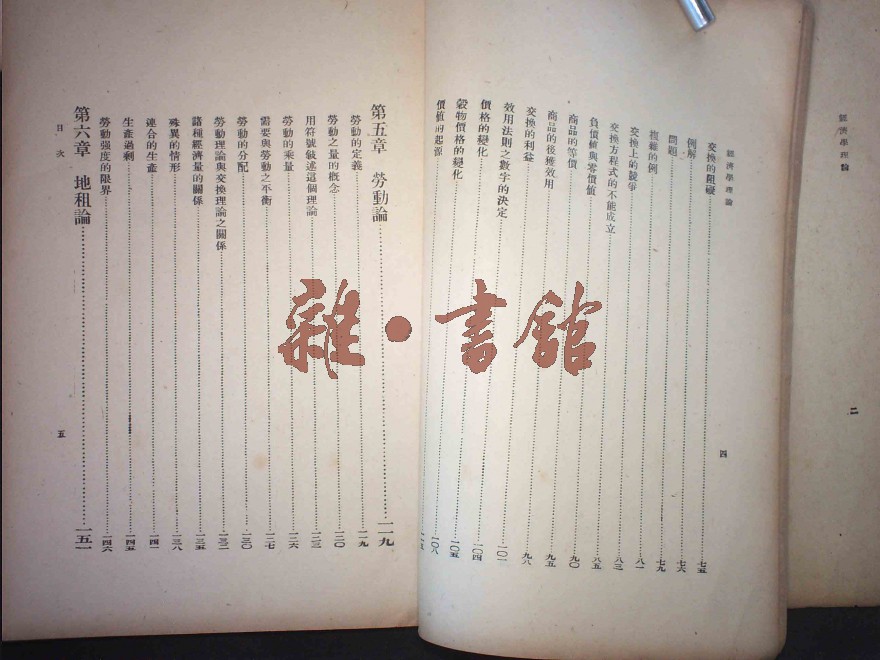 經濟學理論
二
經濟學理論
四
交換的阻礙……七五
例解……七六
問題……七九
複雜的例……八一
交換上的競爭……八三
交換方程式的不能成立……八五
負價値與零價値……九〇
商品的等價……九五
商品的後種效用……九八
交換的利益……一〇一
效用法則之數字的決定……一〇四
價格的變化……一〇五
穀物價格的變化……一〇八
價值的起源……
第五章　勞動論……一一九
勞動的定義……一一九
勞動之量的概念……一二〇
用符號敍述這個理論……一二三
勞動的乘量……一二六
需要與勞動之平衡……一二七
勞動的分配……一三〇
勞動理論與交換理論之關係……一三二
諸種經濟量的關係……一三五
殊異的情形……一三八
連合的生產……一四一
生產過剩……一四五
勞動强度的限界……一四六
第六章　地租論……一五一
目次
五
雜・書館